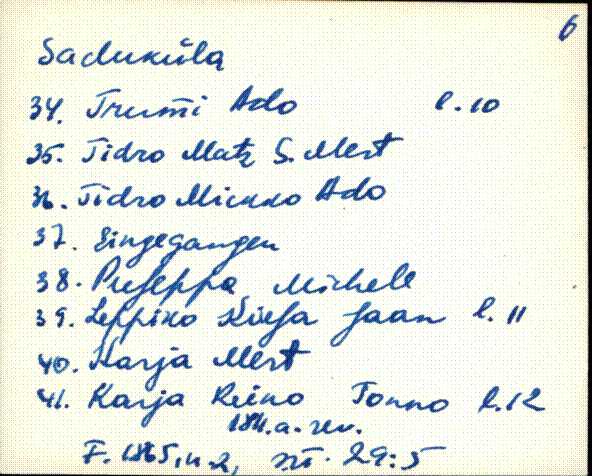 6
Saduküla
34. Trummi Ado l. 10
35. Tidro Matz S. Mert
36. Tidro Mickko Ado
37. Eingegangen
38. Michele
39. Leppiko Jaan l. 11
40. Karja Mert
41. Karja Reino Tonno l. 12
1811. a. rev.
F. 1865, n. 2, 29:5